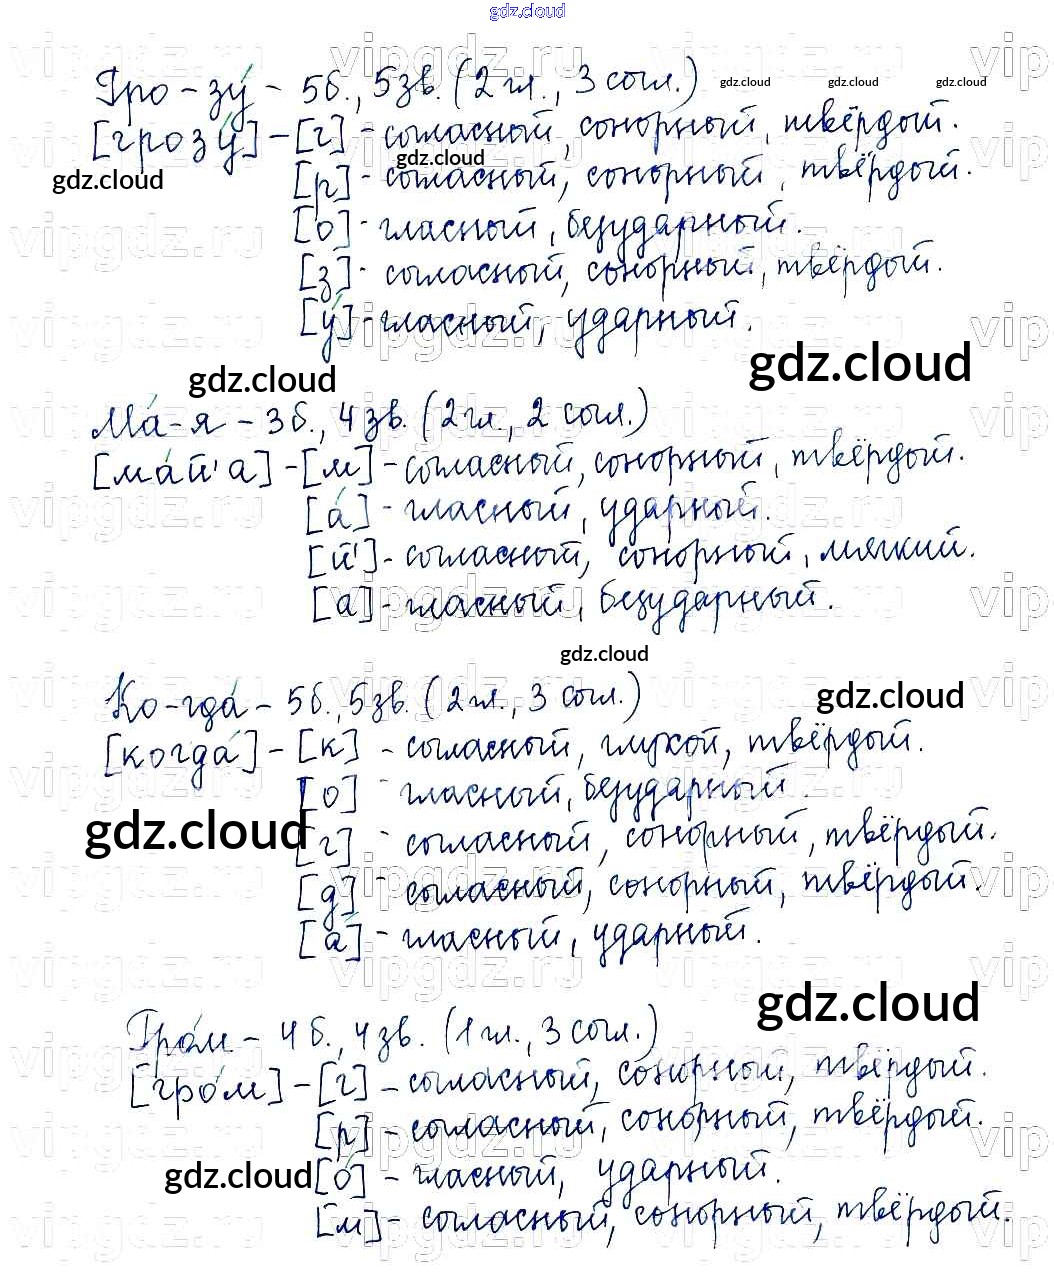 gdz.cloud
Гро-зу́ - 5б., 5зв. (2 гл., 3 согл.)
gdz.cloud gdz.cloud gdz.cloud
[грозу́] - [г] - согласный, сонорный, твёрдый.
gdz.cloud
gdz.cloud
[р] - согласный, сонорный, твёрдый.
[о] - гласный, безударный.
[з] - согласный, сонорный, твёрдый.
[у́] - гласный, ударный.
gdz.cloud
gdz.cloud
Ма́-я - 3б., 4зв. (2 гл., 2 согл.)
[ма́й'а] - [м] - согласный, сонорный, твёрдый.
[а́] - гласный, ударный.
[й'] - согласный, сонорный, мягкий.
[а] - гласный, безударный.
gdz.cloud
gdz.cloud
Ко-гда́ - 5б., 5зв. (2 гл., 3 согл.)
[когда́] - [к] - согласный, глухой, твёрдый.
[о] гласный, безударный.
gdz.cloud
[г] - согласный, сонорный, твёрдый.
[д] - согласный, сонорный, твёрдый.
[а́] - гласный, ударный.
gdz.cloud
Гро́м - 4б., 4зв. (1 гл., 3 согл.)
[гро́м] - [г] - согласный, сонорный, твёрдый.
[р] - согласный, сонорный, твёрдый.
gdz.cloud
[о́] - гласный, ударный.
[м] - согласный, сонорный, твёрдый.
vipgdz.ru